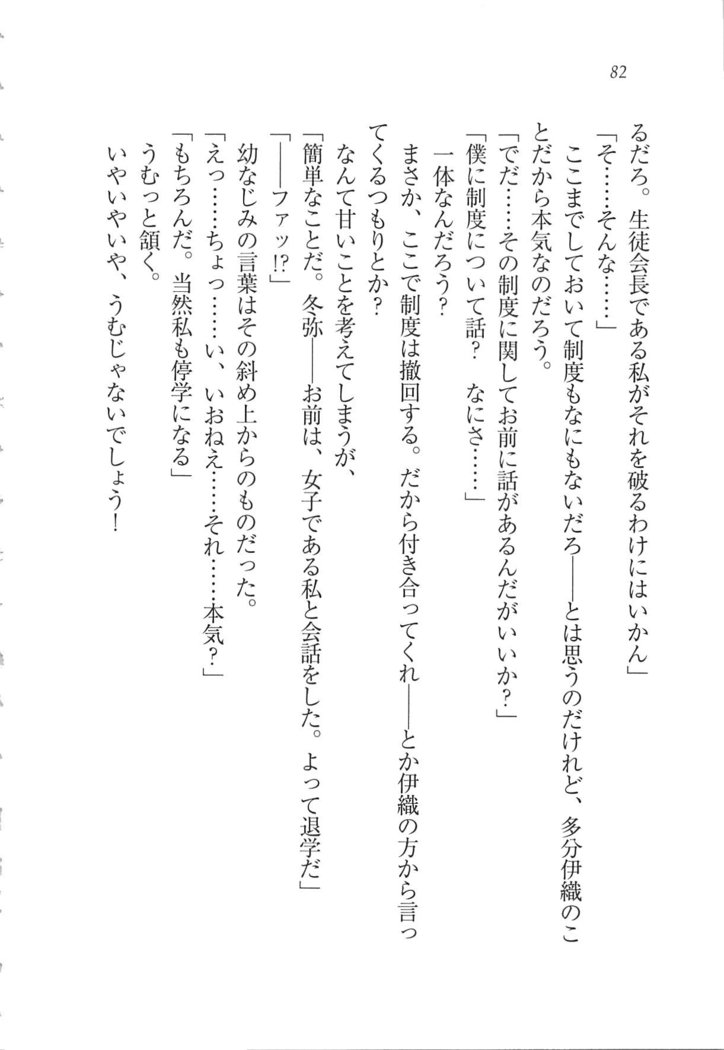 82
るだろ。生徒会長である私がそれを破るわけにはいかん」
「そ……そんな……」
　ここまでしておいて制度もなにもないだろ――とは思うのだけれど、多分伊織のこ
とだから本気なのだろう。
「でだ……その制度に関してお前に話があるんだがいいか？」
「僕に制度について話？　なにさ……」
　一体なんだろう？
　まさか、ここで制度は撤回する。だから付き合ってくれ――とか伊織の方から言っ
てくるつもりとか？
　なんて甘いことを考えてしまうが、
「簡単なことだ。冬弥――お前は、女子である私と会話をした。よって退学だ」
「――ファッ!?」
　幼なじみの言葉はその斜め上からのものだった。
「えっ……ちょっ……い、いおねえ……それ……本気？」
「もちろんだ。当然私も停学になる」
　うむっと頷く。
　いやいやいや、うむじゃないでしょう！